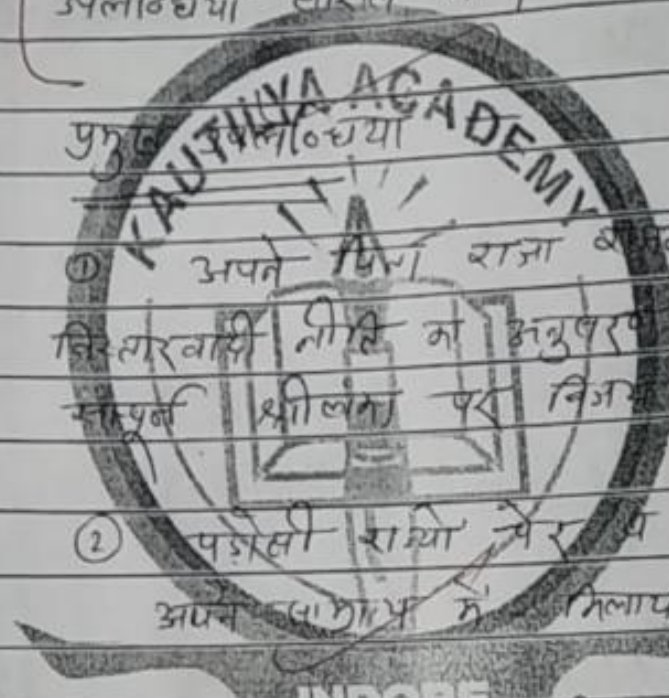 उपलब्धियाँ
KAUTILYA ACADEMY
प्रमुख उपलब्धियाँ
① अपने पिता राजा
विस्तारवादी नीति का अनुसरण
सम्पूर्ण श्रीलंका पर विजय
② पड़ोसी राज्यो
अपने साम्राज्य में मिलाय
INDORE